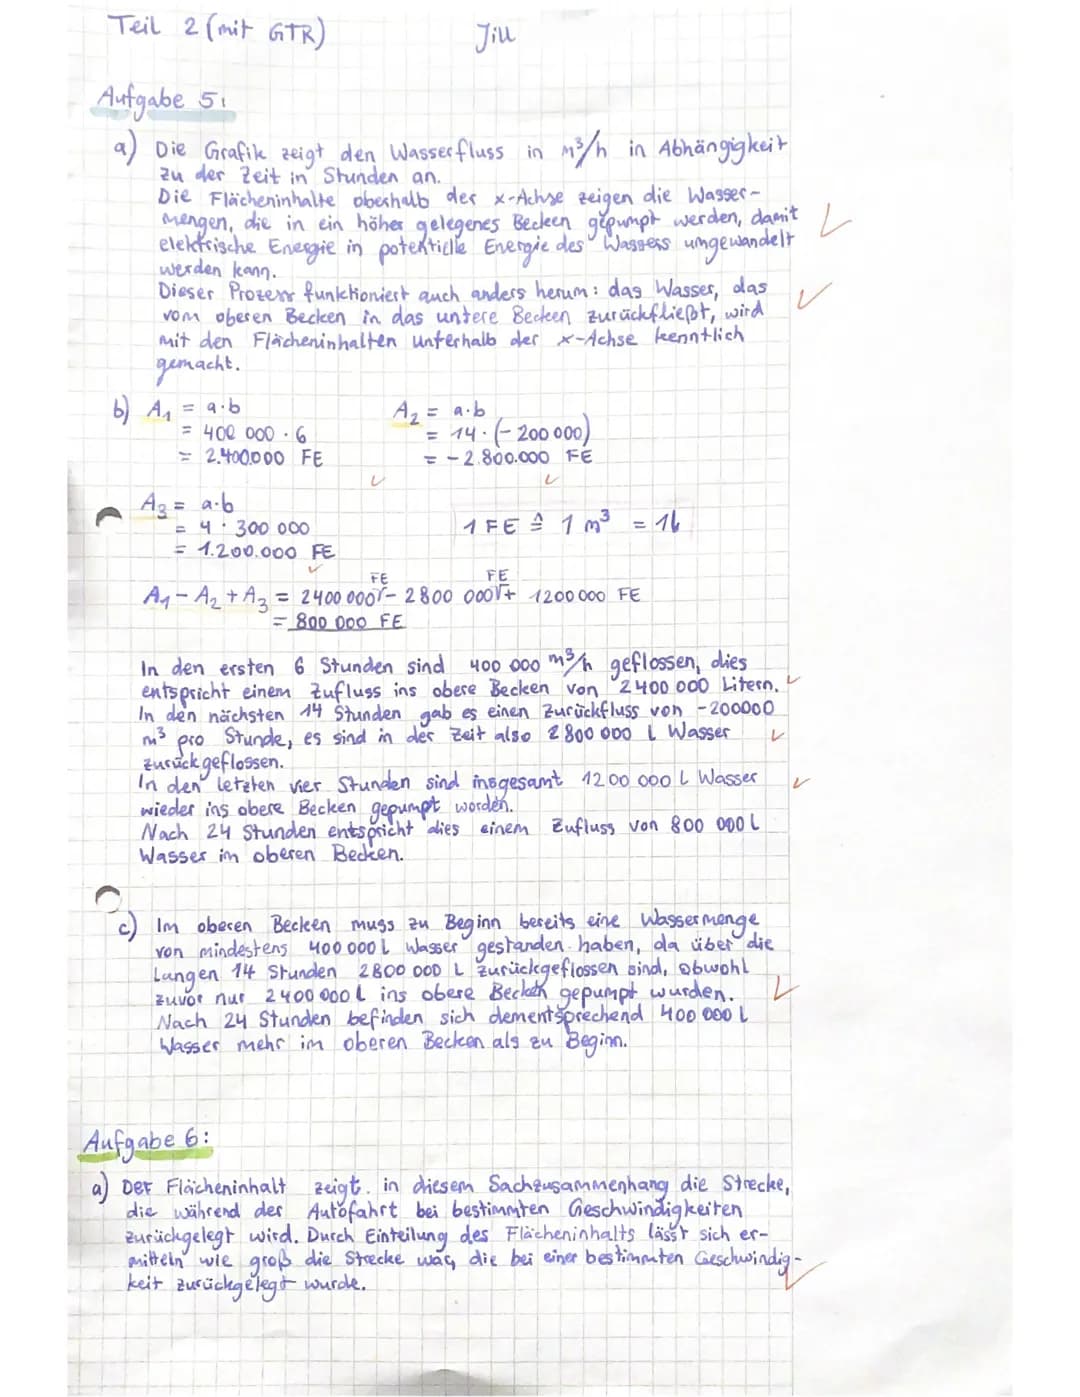 Teil 2 (mit GTR)
Jill
Aufgabe 5:
a) Die Grafik zeigt den Wasserfluss in m³/h in Abhängigkeit
zu der Zeit in Stunden an.
Die Flächeninhalte oberhalb der x-Achse zeigen die Wasser-
mengen, die in ein höher gelegenes Becken gepumpt werden, damit
elektrische Energie in potentielle Energie des Wassers umgewandelt
werden kann.
Dieser Prozess funktioniert auch anders herum: das Wasser, das
vom oberen Becken in das untere Becken zurückfließt, wird
mit den Flächeninhalten unterhalb der x-Achse kenntlich
gemacht.
b) A₁ = a·b
= 400 000 · 6
= 2.400.000 FE
A₂ = a·b
= 14 · (-200 000)
= -2.800.000 FE
A₃ = a·b
= 4 · 300 000
= 1.200.000 FE
1 FE ≙ 1 m³ = 1L
FE FE
A₁ - A₂ + A₃ = 2400 000 - 2800 000 + 1200 000 FE
= 800 000 FE
In den ersten 6 Stunden sind 400 000 m³/h geflossen, dies
entspricht einem Zufluss ins obere Becken von 2400 000 Litern.
In den nächsten 14 Stunden gab es einen Zurückfluss von -200000
m³ pro Stunde, es sind in der Zeit also 2800 000 L Wasser
zurückgeflossen.
In den letzten vier Stunden sind insgesamt 1200 000 L Wasser
wieder ins obere Becken gepumpt worden.
Nach 24 Stunden entspricht dies einem Zufluss von 800 000 L
Wasser im oberen Becken.
c) Im oberen Becken muss zu Beginn bereits eine Wassermenge
von mindestens 400 000 L Wasser gestanden haben, da über die
Langen 14 Stunden 2800 000 L zurückgeflossen sind, obwohl
zuvor nur 2400 000 L ins obere Becken gepumpt wurden.
Nach 24 Stunden befinden sich dementsprechend 400 000 L
Wasser mehr im oberen Becken als zu Beginn.
Aufgabe 6:
a) Der Flächeninhalt zeigt in diesem Sachzusammenhang die Strecke,
die während der Autofahrt bei bestimmten Geschwindigkeiten
zurückgelegt wird. Durch Einteilung des Flächeninhalts lässt sich er-
mitteln wie groß die Strecke war, die bei einer bestimmten Geschwindig-
keit zurückgelegt wurde.